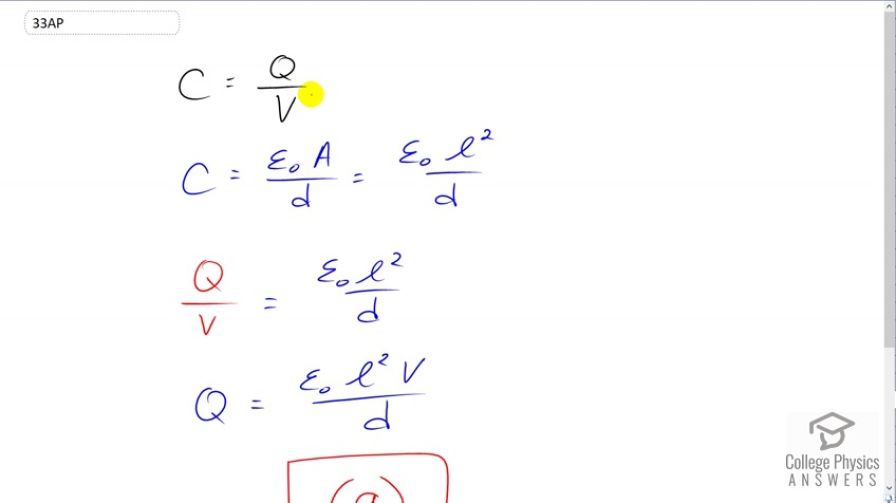 33AP
C = Q/V
C = ε₀A/d = ε₀ℓ²/d
Q/V = ε₀ℓ²/d
Q = ε₀ℓ²V/d
(a)
College Physics
ANSWERS